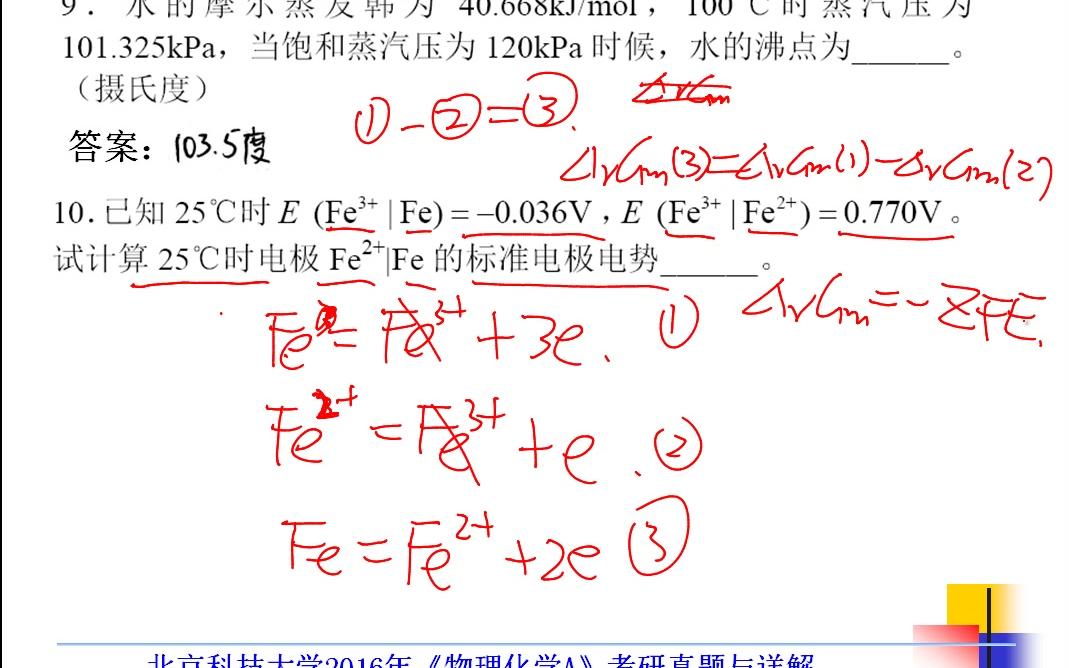 9．水的摩尔蒸发韩为 40.668kJ/mol，100℃时蒸汽压为
101.325kPa，当饱和蒸汽压为 120kPa 时候，水的沸点为______。
（摄氏度）
① - ② = ③.
答案：103.5度
ΔrGm(3)=ΔrGm(1)-ΔrGm(2)
10．已知 25℃时 E (Fe³⁺ | Fe) = –0.036V，E (Fe³⁺ | Fe²⁺) = 0.770V 。
试计算 25℃时电极 Fe²⁺|Fe 的标准电极电势______。
ΔrGm=-ZFE.
Fe = Fe³⁺ + 3e. ①
Fe²⁺ = Fe³⁺ + e. ②
Fe = Fe²⁺ + 2e ③
北京科技大学2016年《物理化学A》考研真题与详解